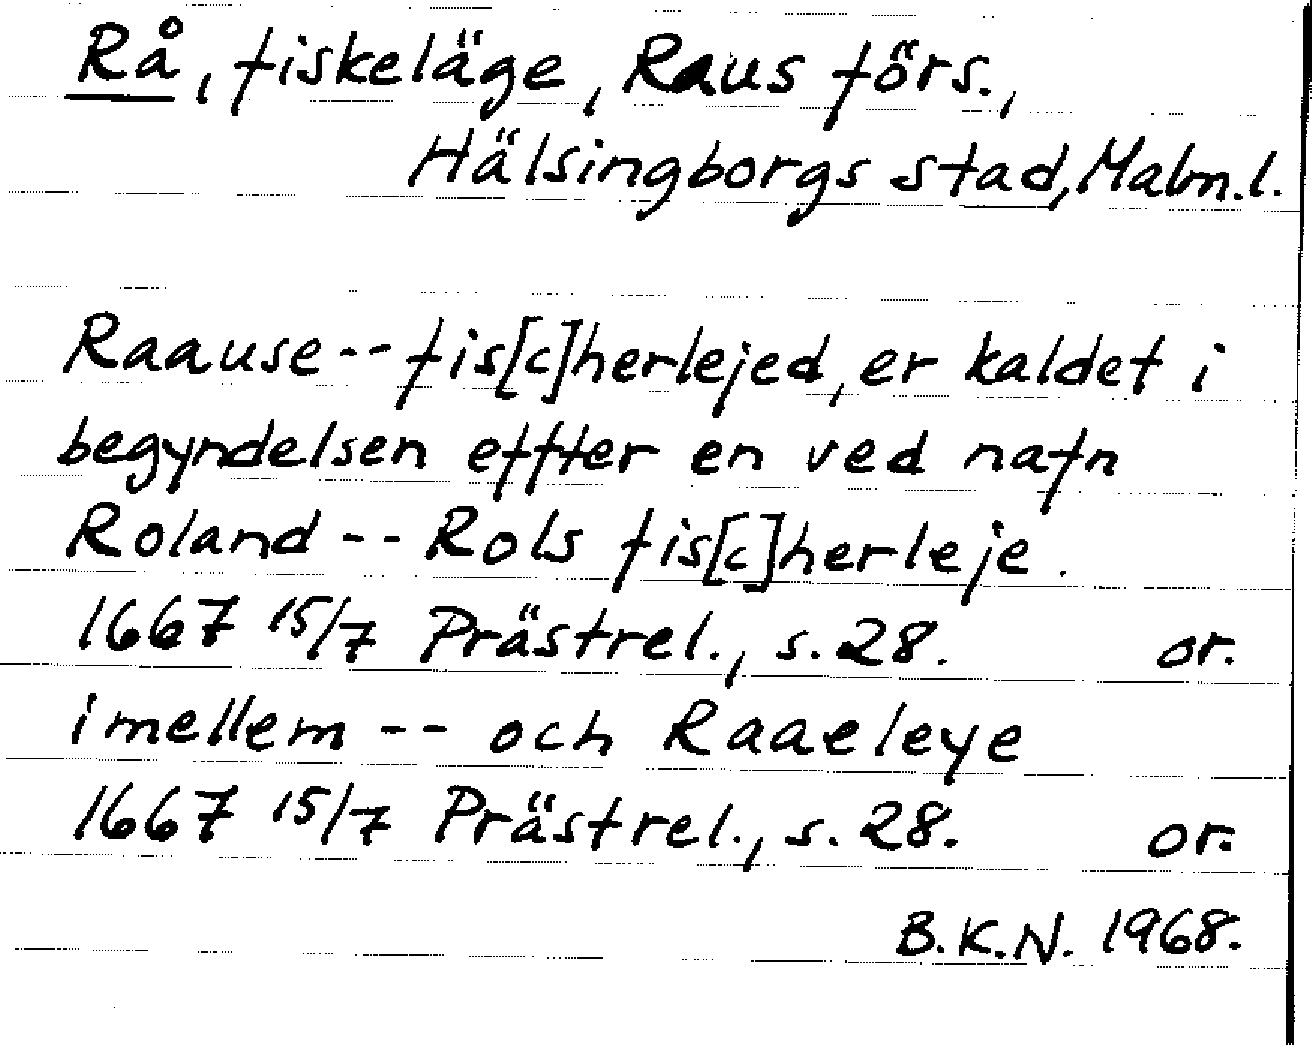 Rå, fiskeläge, Raus förs.,
Hälsingborgs stad, Malm.l.
Raause -- fis[c]herlejed, er kaldet i
begyndelsen effter en ved nafn
Roland -- Rols fis[c]herleje.
1667 15/7 Prästrel., s. 28. or.
imellem -- och Raaeleye
1667 15/7 Prästrel., s. 28. or.
B.K.N. 1968.